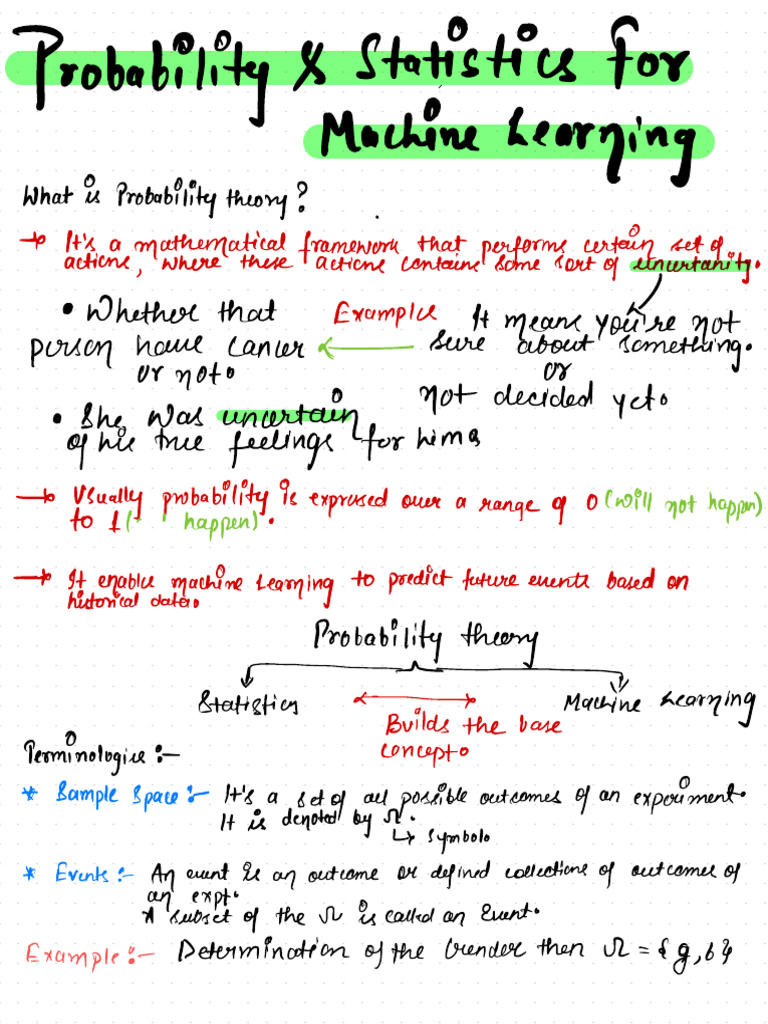 Probability & Statistics for
Machine Learning
What is Probability theory?
→ It's a mathematical framework that performs certain set of
actions, where these actions contains some sort of uncertanity.
• Whether that
person have cancer
or not.
Example
It means you're not
sure about something.
or
not decided yet.
• She was uncertain
of his true feelings for him.
→ Usually probability is expressed over a range of 0 (will not happen)
to 1 (- happen).
→ It enable machine learning to predict future events based on
historical data.
Probability theory
Statistics
Machine Learning
Builds the base
concept.
Terminologies :-
* Sample Space :- It's a set of all possible outcomes of an experiment.
It is denoted by Ω.
↳ symbol.
* Events :- An event is an outcome or defined collections of outcomes of
an expt.
A subset of the Ω is called an Event.
Example :- Determination of the Gender then Ω = {g, b}